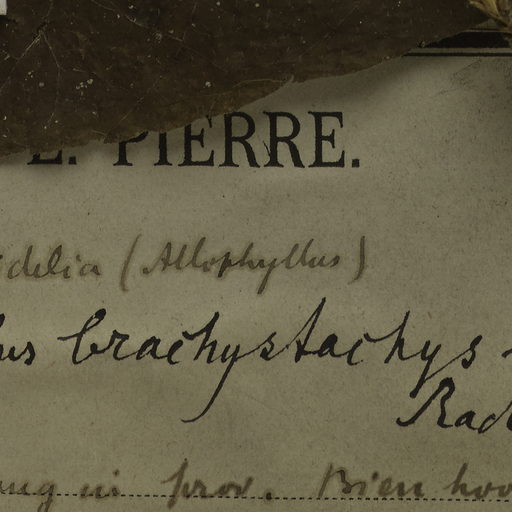 L. PIERRE.
delia (Allophyllus)
us brachystachys
Rad
ung in prov. Bien hoa